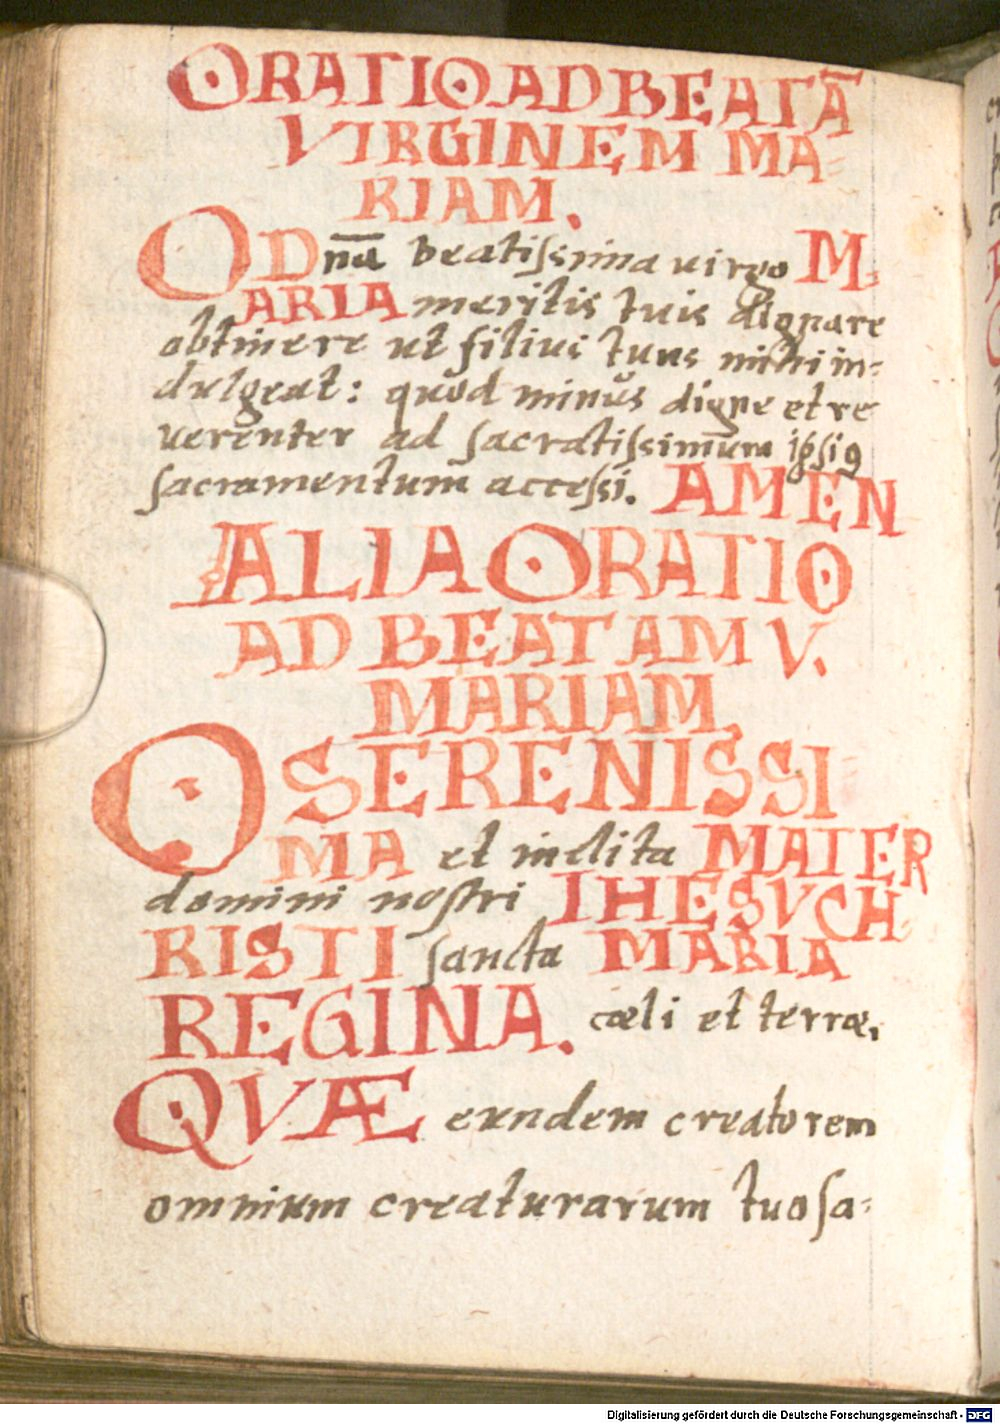 ORATIO AD BEATĀ
VIRGINEM MA-
RIAM.
O Dn̄a beatissima virgo M-
ARIA meritis tuis dignare
obtinere ut filius tuus mihi in-
dulgeat: quod minus digne et re
verenter ad sacratissimum ipsiꝯ
sacramentum accessi. AMEN
ALIA ORATIO
AD BEATAM V.
MARIAM.
O SERENISSI-
MA et inclita MATER
domini nostri IHESV CH-
RISTI sancta MARIA
REGINA. cæli et terræ,
QVÆ eundem creatorem
omnium creaturarum tuo sa-
Digitalisierung gefördert durch die Deutsche Forschungsgemeinschaft - DFG